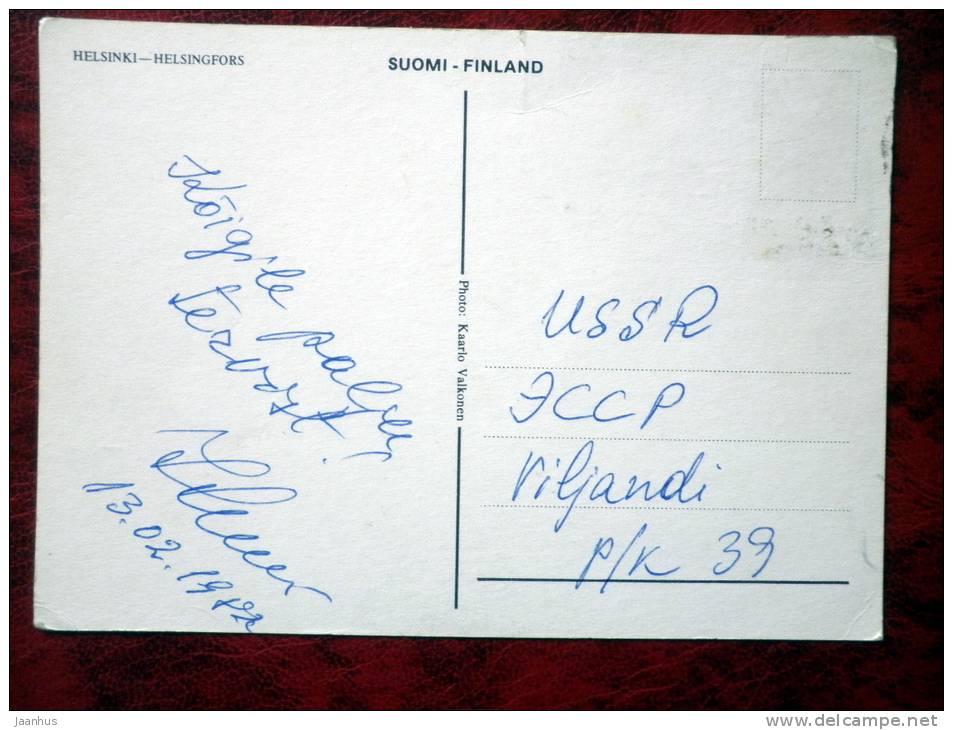 HELSINKI—HELSINGFORS
SUOMI - FINLAND
Kõigile palju
tervist!
13.02.19
Photo: Kaarlo Valkonen
USSR
ЭССР
Viljandi
p/k 39
Jaanhus
www.delcampe.net